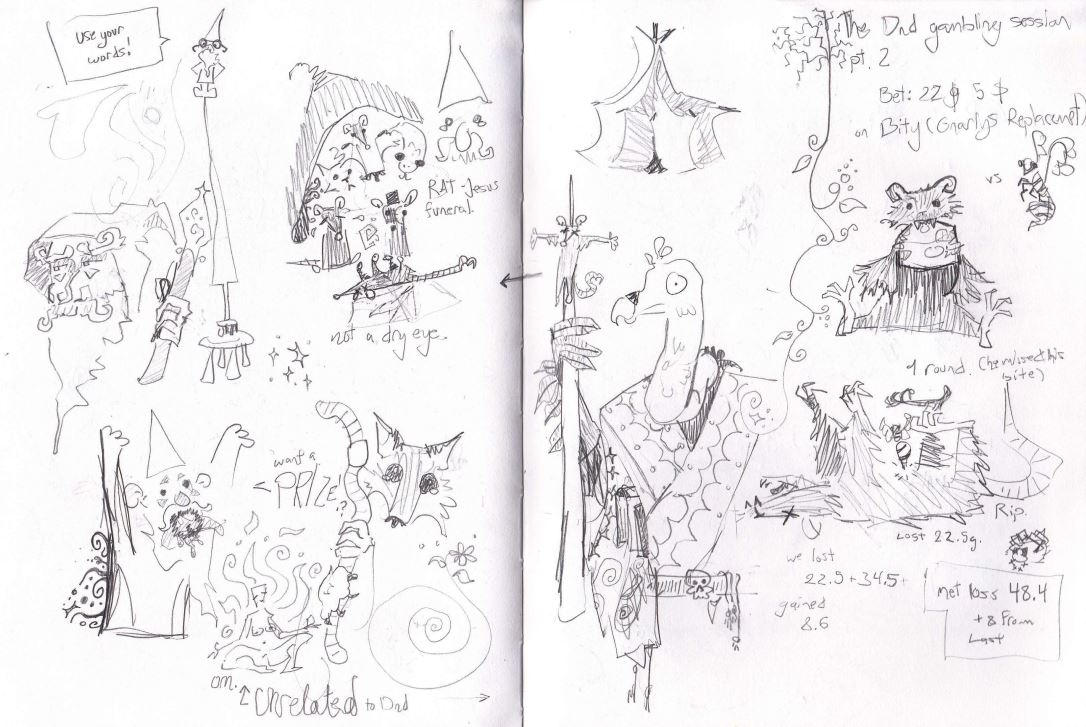 use your
words!
RAT-Jesus
funeral.
not a dry eye.
want a
PRIZE.?
om.
unrelated to Dnd
The Dnd gambling session
pt. 2
Bet: 22 $ 5 $
on Bity (Gnarlys Replacement)
vs
1 round. (he missed his
bite)
Rip.
Lost 22.5g.
we lost
22.5 + 34.5 +
gained
8.6
net loss 48.4
+ 8 from
Last